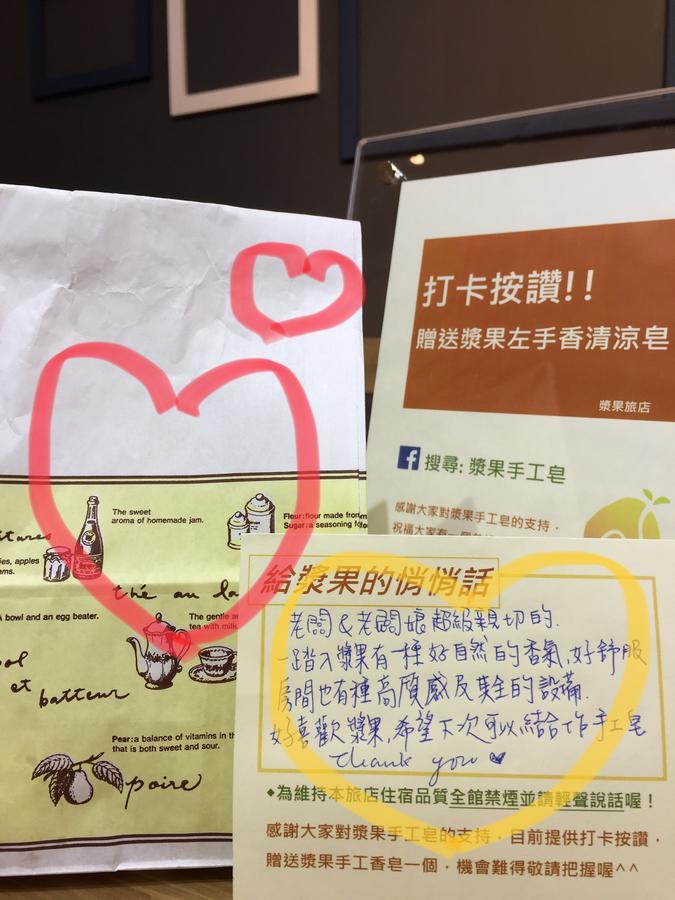 打卡按讚!!
贈送漿果左手香清涼皂
漿果旅店
f 搜尋: 漿果手工皂
感謝大家對漿果手工皂的支持，
The sweet
aroma of homemade jam.
Flour:flour made from
Sugar:a seasoning fo
ies, apples
ams.
thé au la
A bowl and an egg beater.
The gentle a
tea with milk.
et
batteur
Pear:a balance of vitamins in th
that is both sweet and sour.
poire
給漿果的悄悄話
老闆&老闆娘超級親切的.
一踏入漿果有一種好自然的香氣,好舒服
房間也有種高質感及其全的設備.
好喜歡漿果,希望下次可以結合作手工皂
thank you
◆為維持本旅店住宿品質全館禁煙並請輕聲說話喔！
感謝大家對漿果手工皂的支持，目前提供打卡按讚，
贈送漿果手工香皂一個，機會難得敬請把握喔^^